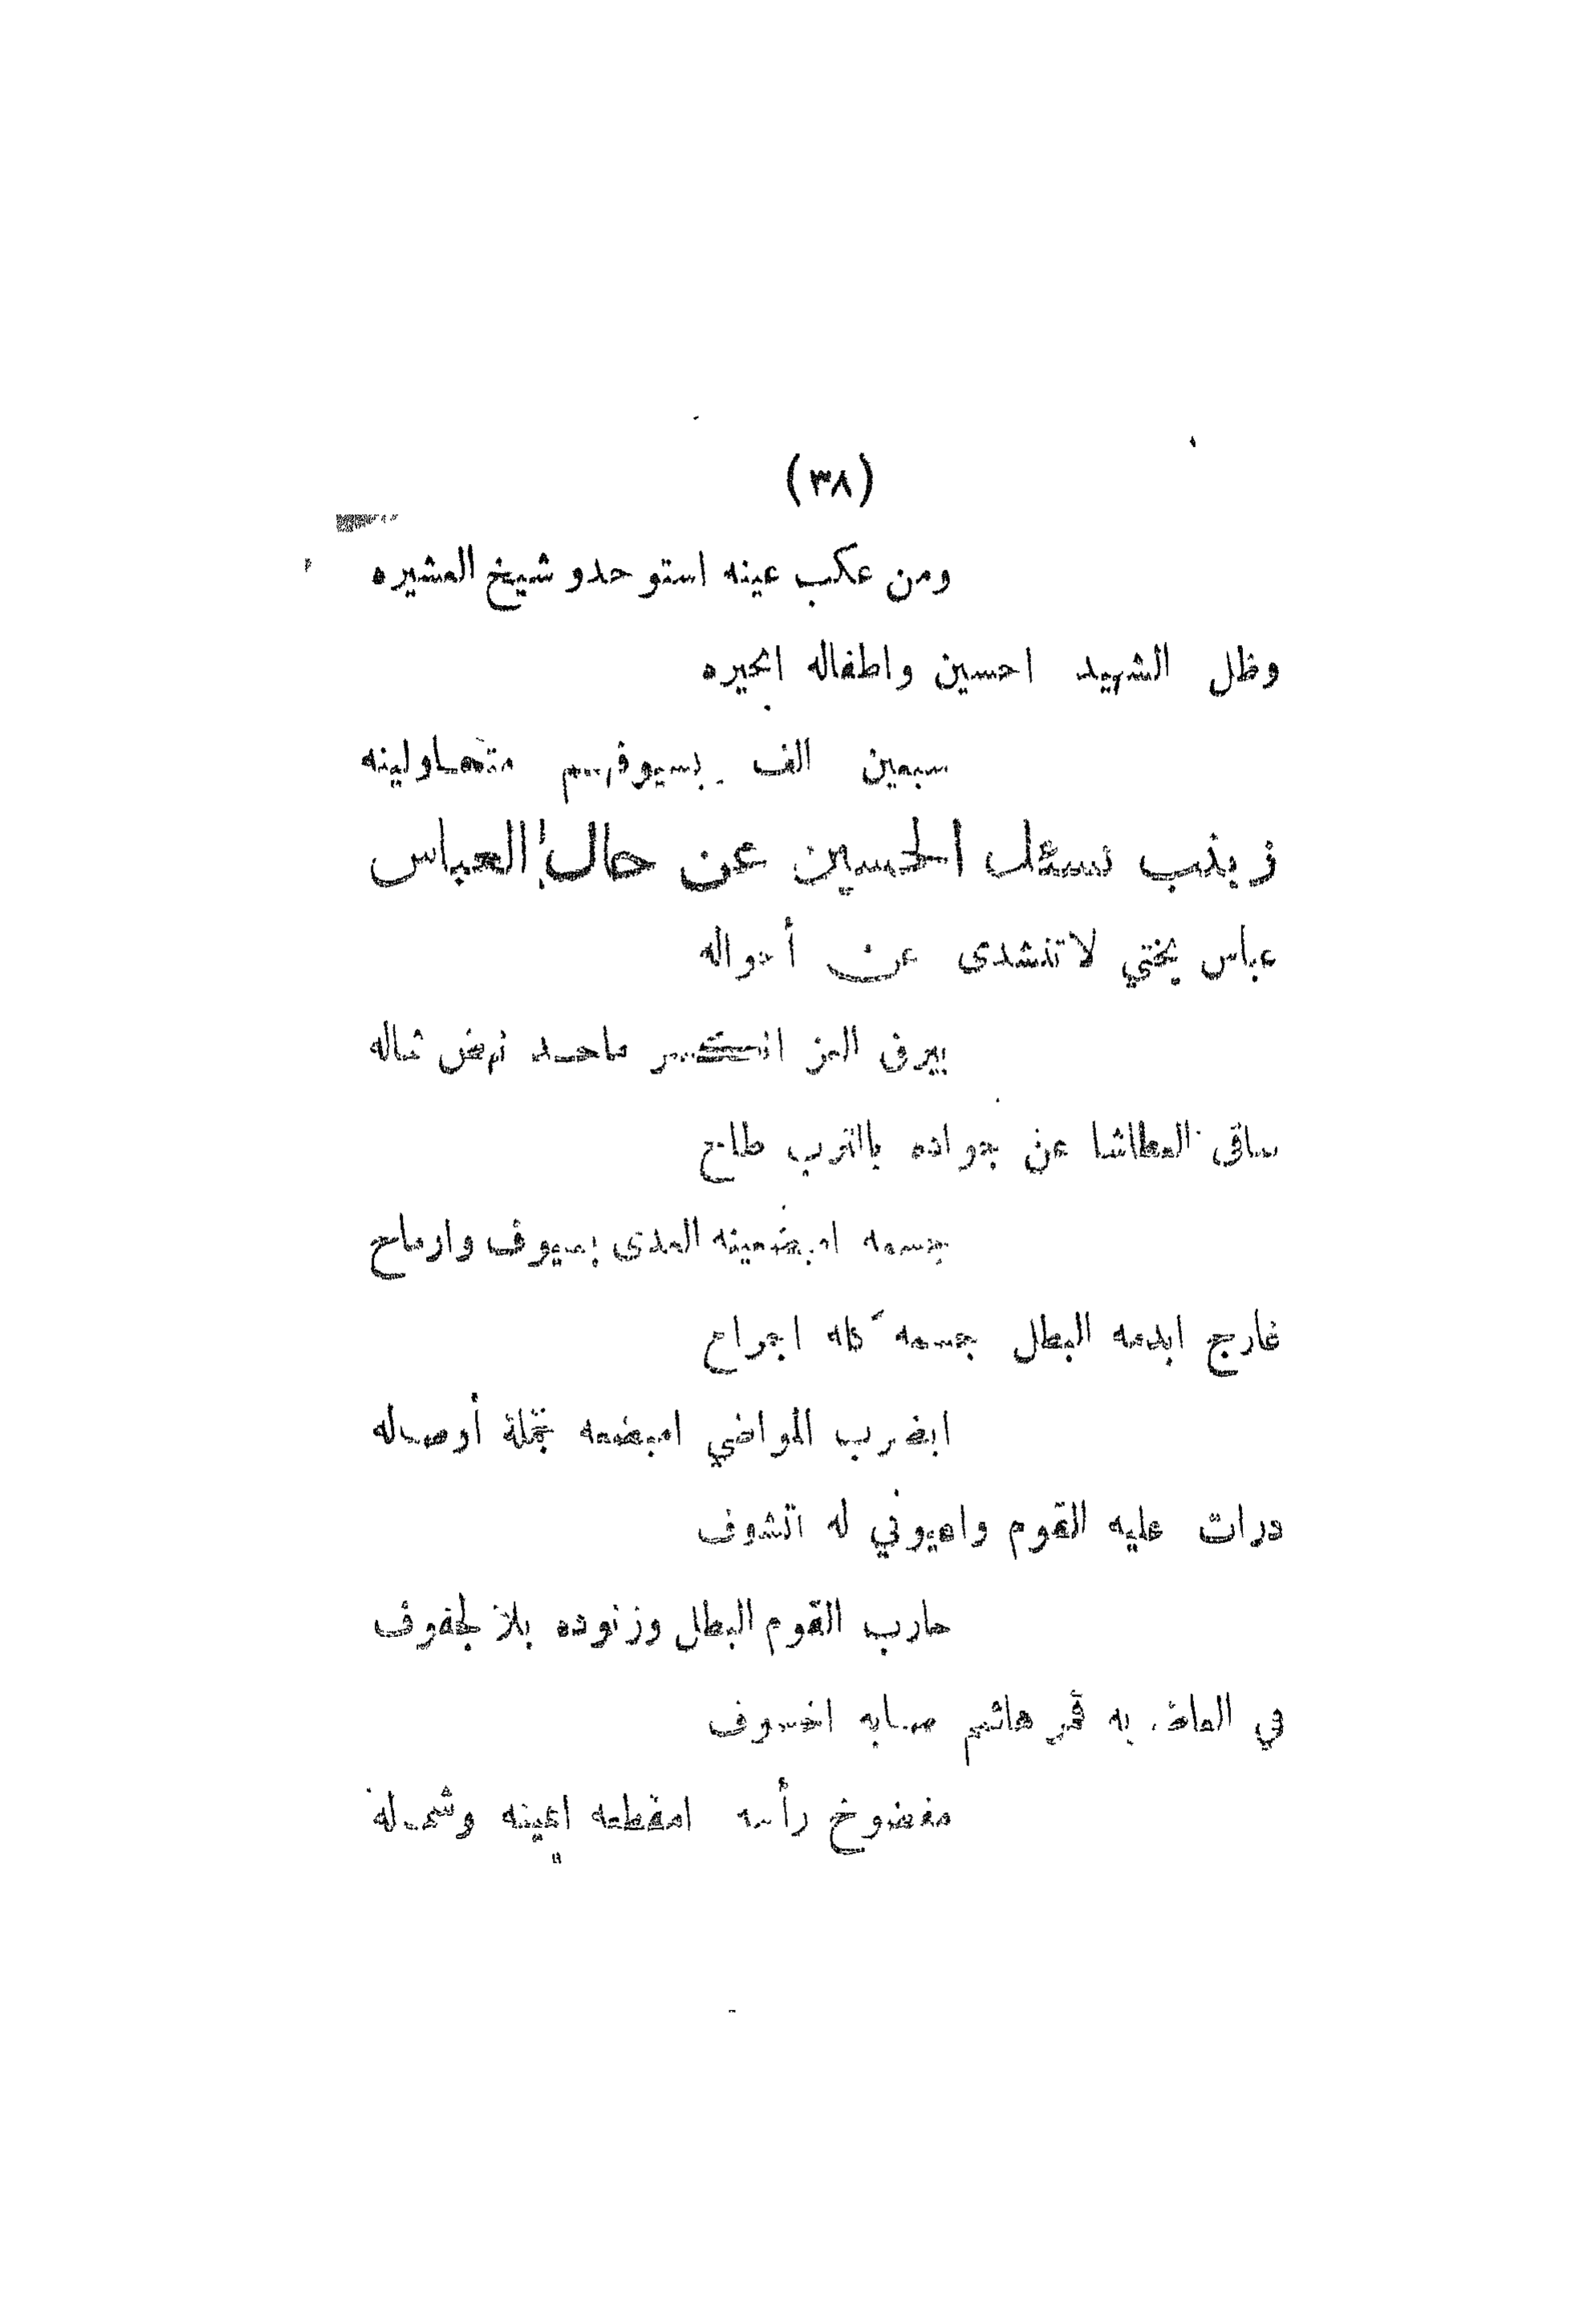 (٣٨)
ومن عكب عينه استو حدو شيخ العشيره
وظل الشهيد احسين واطفاله ابحيره
سبعين الف بسيوفهم متعاولينه
زينب تسئل الحسين عن حال العباس
عباس يختي لاتنشدى عن أحواله
بيرق العز انكسر ماحد نهض شاله
ساقى العطاشا عن جواده بالترب طاح
جسمه امبضعينه العدى بسيوف وارماح
غارج ابدمه البطل جسمه كله اجراح
ابضرب المواضي امبضعه جملة أوصاله
درات عليه القوم واعيوني له اتشوف
حارب القوم البطل وزنوده بلا لجفوف
في قمر هاشم صابه اخسوف
مفضوخ رأسه امقطعه ايمينه وشماله